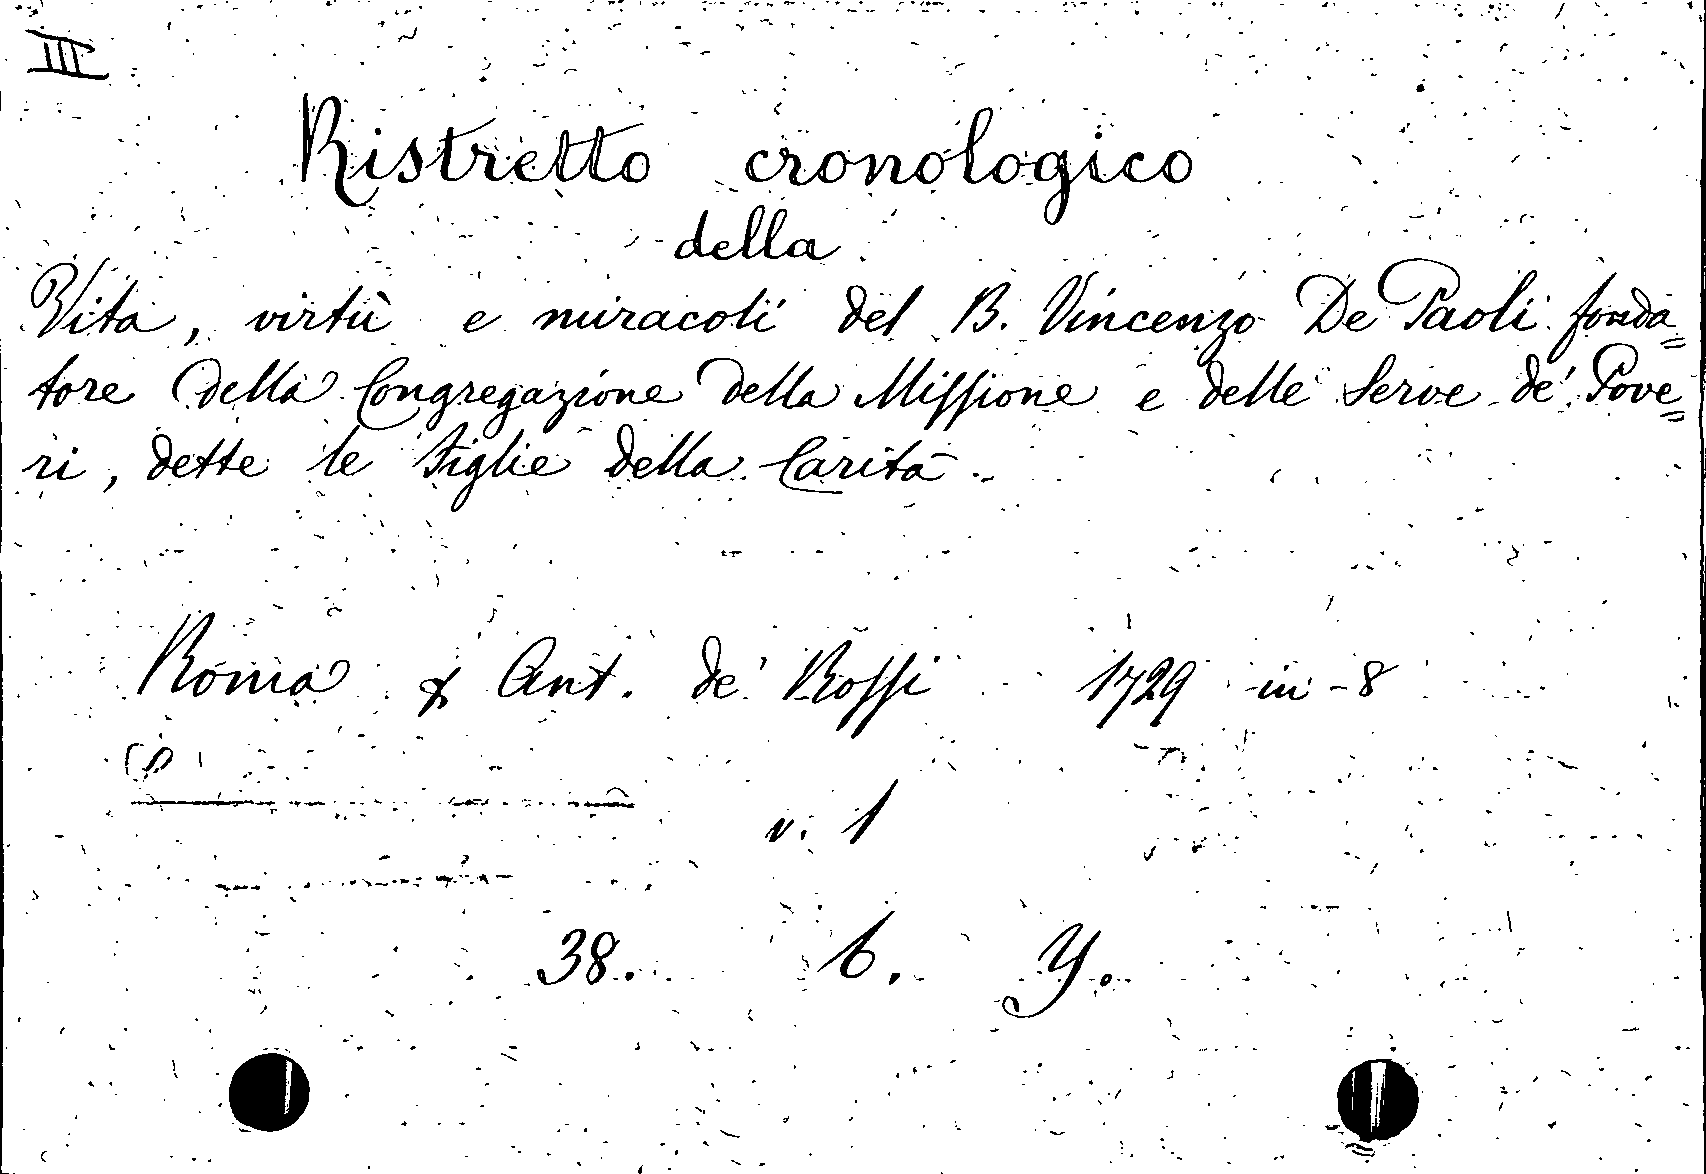 III
Ristretto cronologico
della
Vita, virtù e miracoli del B. Vincenzo De Paoli fonda=
tore della Congregazione della Missione e delle Serve de' Pove=
ri, dette le Figlie della Carità.
Roma & Ant. de' Rossi 1729 in-8
v. 1
38. b. Y.